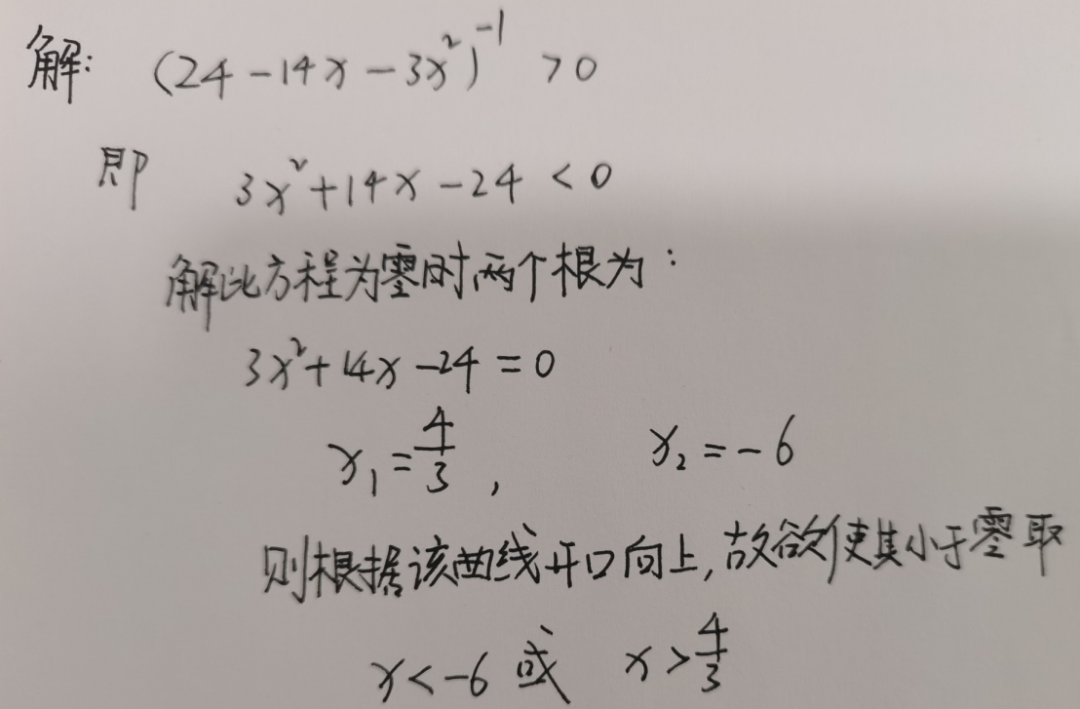 解: (24-14x-3x²)⁻¹ >0
即 3x²+14x-24 <0
解此方程为零时两个根为:
3x²+14x-24=0
x₁=4/3, x₂=-6
则根据该曲线开口向上,故欲使其小于零取
x<-6 或 x>4/3